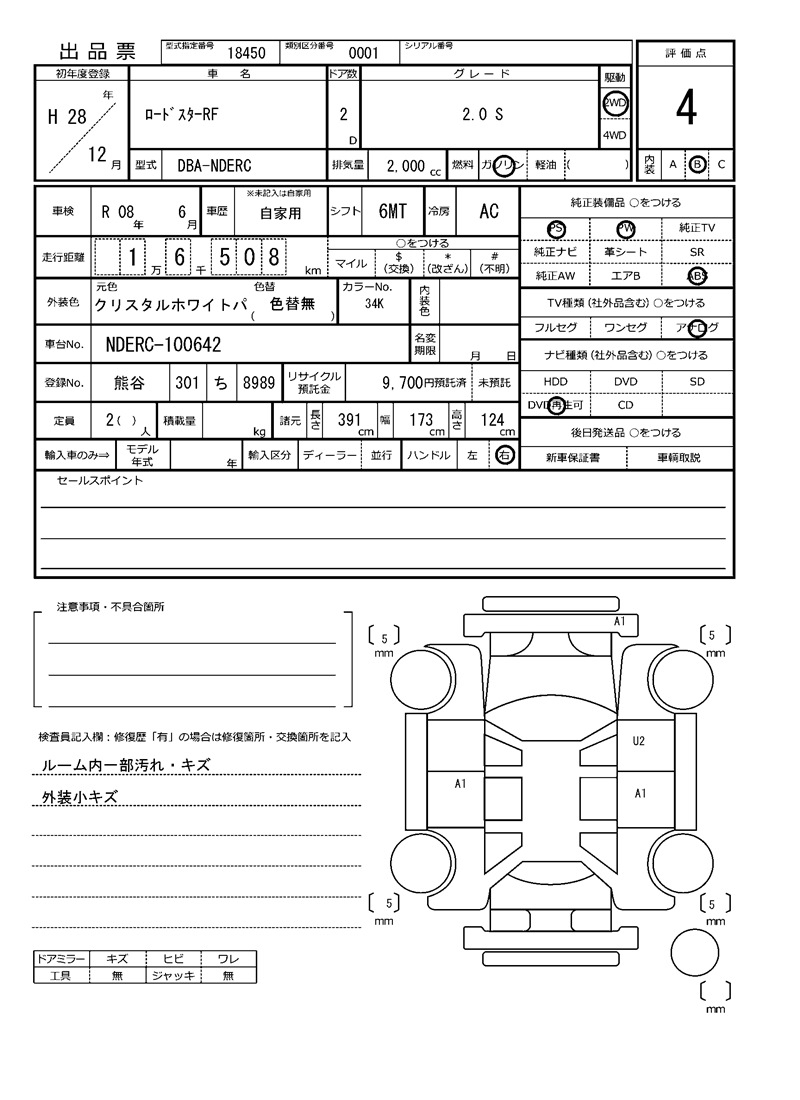 出品票 型式指定番号 18450 類別区分番号 0001 シリアル番号
評価点
4
内装 A B C
初年度登録 車名 ドア数 グレード 駆動
H 28 年 12 月
ロードスターRF 2 D 2.0 S 2WD
4WD
型式 DBA-NDERC 排気量 2,000 cc 燃料 ガソリン 軽油 ( )
車検 R 08 年 6 月 車歴 ※未記入は自家用 自家用 シフト 6MT 冷房 AC
走行距離 1 万 6 千 5 0 8 km ○をつける
マイル $(交換) *(改ざん) #(不明)
外装色 元色 色替 カラーNo. 内装色
クリスタルホワイトパ ( 色替無 ) 34K
車台No. NDERC-100642 名変期限 月 日
登録No. 熊谷 301 ち 8989 リサイクル預託金 9,700円預託済 未預託
定員 2 ( ) 人 積載量 kg 諸元 長さ 391 cm 幅 173 cm 高さ 124 cm
輸入車のみ⇒ モデル年式 年 輸入区分 ディーラー 並行 ハンドル 左 右
純正装備品 ○をつける
PS PW 純正TV
純正ナビ 革シート SR
純正AW エアB ABS
TV種類(社外品含む) ○をつける
フルセグ ワンセグ アナログ
ナビ種類(社外品含む) ○をつける
HDD DVD SD
DVD再生可 CD
後日発送品 ○をつける
新車保証書 車輌取説
セールスポイント
注意事項・不具合箇所
検査員記入欄:修復歴「有」の場合は修復箇所・交換箇所を記入
ルーム内一部汚れ・キズ
外装小キズ
ドアミラー キズ ヒビ ワレ
工具 無 ジャッキ 無
A1
5 mm
5 mm
U2
A1
A1
5 mm
5 mm
mm